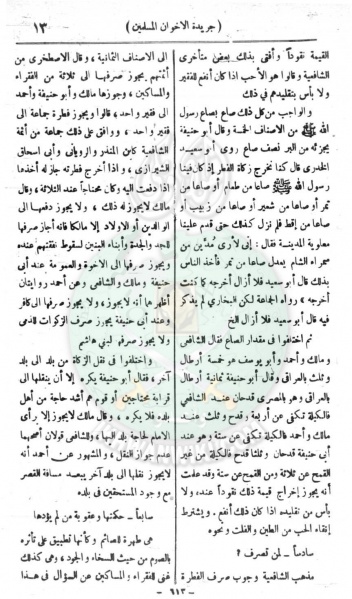 ١٣
( جريدة الاخوان المسلمين )
القيمة نقوداً وأفتى بذلك بعض متأخرى
الشافعية وقالوا هو الأحب اذا كان أنفع للفقير
ولا بأس بتقليدهم في ذلك
والواجب من كل ذلك صاع بصاع رسول
الله ﷺ من الأصناف الخمسة وقال أبو حنيفة
يجزئه من البر نصف صاع روى أبو سعيد
الخدرى قال كنا نخرج زكاة الفطر إذ كان فينا
رسول الله ﷺ صاعا من طعام أو صاعا من
تمر أو صاعا من شعير أو صاعا من زبيب أو
صاعا من اقط فلم نزل كذلك حتى قدم علينا
معاوية المدينة فقال : إنى لأرى مُدّين من
سمراء الشام يعدل صاعا من تمر فأخذ الناس
بذلك قال أبو سعيد فلا أزال أخرجه كما كنت
أخرجه » رواه الجماعة لكن البخارى لم يذكر
فيه قال أبو سعيد فلا أزال الخ
ثم اختلفوا فى مقدار الصاع فقال الشافعى
ومالك وأحمد وأبو يوسف هو خمسة أرطال
وثلث بالعراقى وقال أبو حنيفة ثمانية أرطال
بالعراقى وهو بالمصرى قدحان عند الشافعى
فالكيلة تكفى عن أربعة وقدح وثلث عند
مالك وأحمد فالكيلة تكفى عن ستة وهو عند
أبى حنيفة قدحان وثلثى قدح فالكيلة من غير
القمح عن ثلاثة ومن القمح عن ستة وقد علمت
أنه يجوز إخراج قيمة ذلك نقوداً عنده، ولا
بأس من تقليده اذا كان ذلك أنفع . ويشترط
إنقاء الحب من الطين والغلت ونحوه
سادساً — لمن تصرف ؟
مذهب الشافعية وجوب صرف الفطرة
الى الأصناف الثمانية ، وقال الاصطخرى من
أئمتهم يجوز صرفها الى ثلاثة من الفقراء
والمساكين ، وجوزها مالك وأبو حنيفة وأحمد
الى فقير واحد ، قالوا ويجوز فطرة جماعة الى
فقير واحد ، ووافق على ذلك جماعة من أئمة
الشافعية كابن المنذر والرويانى وأبى اسحاق
الشيرازى ، واذا أخرج فطرته جاز له أخذها
اذا دفعت اليه وكان محتاجاً عند الثلاثة ، وقال
مالك لا يجوز ذلك ، ولا يجوز دفعها الى
الوالدين أو الاولاد إلا مالكا فانه أجاز صرفها
للجد والجدة وأبناء البنين لسقوط نفقتهم عنده
ويجوز صرفها الى الاخوة والعمومة عند أبى
حنيفة ومالك والشافعى وعن أحمد روايتان
أظهرهما أنه لا يجوز، ولا يجوز صرفها الى كافر
وعند أبى حنيفة يجوز صرف الزكوات الى الذمى
ولا يجوز صرفها لبنى هاشم
واختلفوا فى نقل الزكاة من بلد الى بلد
آخر ، فقال أبو حنيفة يكره إلا أن ينقلها الى
قرابة محتاجين أو قوم هم أشد حاجة من أهل
بلده فلا يكره ، وقال مالك لا يجوز إلا أن رأى
الامام لحاجة بلد اليها ، وللشافعى قولان أصحهما
عدم جواز النقل ، والمشهور عن أحمد أنه
لا يجوز نقلها الى بلد آخر يبعد مسافة القصر
مع وجود المستحقين فى بلده
سابعاً — حكمتها وعقوبة من لم يؤدها
هى طهرة للصائم وكأنها تطبيق على تأثره
بالصوم من حيث السخاء والجود ، وهى كذلك
غنى للفقراء والمساكين عن السؤال فى هذا
— ٦١٣ —